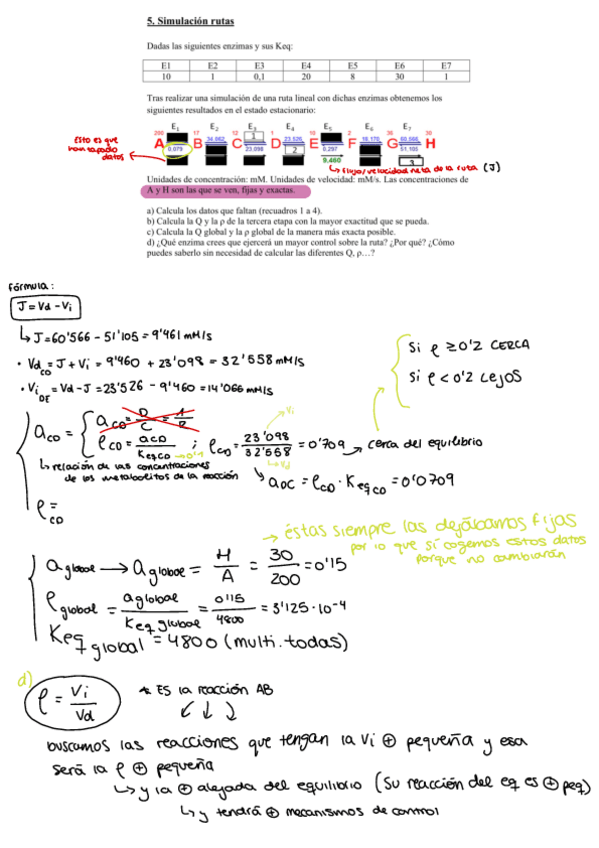 5. Simulación rutas
Dadas las siguientes enzimas y sus Keq:
E1 E2 E3 E4 E5 E6 E7
10 1 0,1 20 8 30 1
Tras realizar una simulación de una ruta lineal con dichas enzimas obtenemos los
siguientes resultados en el estado estacionario:
E1 E2 E3 E4 E5 E6 E7
200 17 12 10 2 36 30
A B C D E F G H
34.662 1 23.526 18.170 60.566
0.079 23.098 2 0.297 51.105
9.460 3
Esto es que
han tapado
datos
flujo/velocidad neta de la ruta (J)
Unidades de concentración: mM. Unidades de velocidad: mM/s. Las concentraciones de
A y H son las que se ven, fijas y exactas.
a) Calcula los datos que faltan (recuadros 1 a 4).
b) Calcula la Q y la ρ de la tercera etapa con la mayor exactitud que se pueda.
c) Calcula la Q global y la ρ global de la manera más exacta posible.
d) ¿Qué enzima crees que ejercerá un mayor control sobre la ruta? ¿Por qué? ¿Cómo
puedes saberlo sin necesidad de calcular las diferentes Q, ρ…?
Fórmula:
J = Vd - Vi
↳ J = 60'566 - 51'105 = 9'461 mM/s
• Vd CD = J + Vi = 9'460 + 23'098 = 32'558 mM/s
• Vi DE = Vd - J = 23'526 - 9'460 = 14'066 mM/s
Si ρ ≥ 0'2 CERCA
Si ρ < 0'2 LEJOS
Vi
ρCD = aCD / KeqCD → 0'1 ; ρCD = 23'098 / 32'558 = 0'709 → cerca del equilibrio
Vd
aCD =
↳ relación de las concentraciones
de los metabolitos de la reacción
aDC = ρCD · KeqCD = 0'0709
ρCD =
→ éstas siempre las dejábamos fijas
por lo que sí cogemos estos datos
porque no cambiarán
aglobal → aglobal = H / A = 30 / 200 = 0'15
ρglobal = aglobal / Keq global = 0'15 / 4800 = 3'125 · 10⁻⁴
Keq global = 4800 (multi. todas)
d)
ρ = Vi / Vd
* ES la reacción AB
buscamos las reacciones que tengan la Vi ⊕ pequeña y esa
será la ρ ⊕ pequeña
↳ y la ⊕ alejada del equilibrio (su reacción del eq es ⊕ peq)
↳ y tendrá ⊕ mecanismos de control